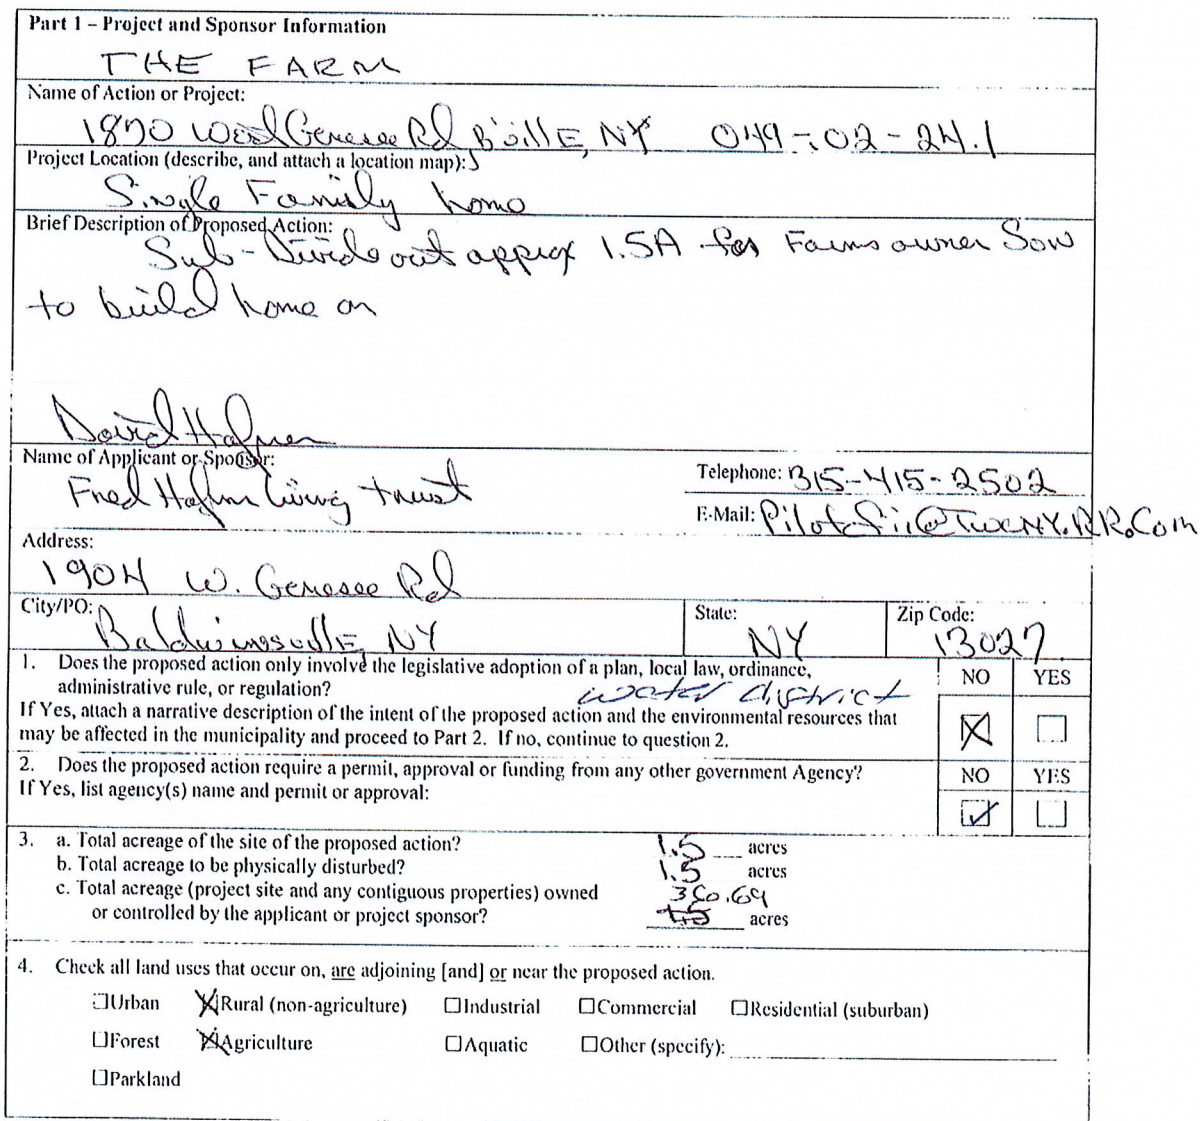 Part 1 – Project and Sponsor Information
THE FARM
Name of Action or Project:
1870 West Genesee Rd, B'ville, NY 049-02-24.1
Project Location (describe, and attach a location map):
Single Family home
Brief Description of Proposed Action:
Sub-Divide out approx 1.5A for Farms owner Son
to build home on
David Hafner
Name of Applicant or Sponsor:
Fred Hafner Living trust
Telephone: 315-415-2502
E-Mail: @TWCNY.RR.Com
Address:
1904 W. Genesee Rd
City/PO: Baldwinsville, NY
State: NY
Zip Code: 13027
1. Does the proposed action only involve the legislative adoption of a plan, local law, ordinance,
administrative rule, or regulation?
water district
If Yes, attach a narrative description of the intent of the proposed action and the environmental resources that
may be affected in the municipality and proceed to Part 2. If no, continue to question 2.
NO YES
2. Does the proposed action require a permit, approval or funding from any other government Agency?
If Yes, list agency(s) name and permit or approval:
NO YES
3. a. Total acreage of the site of the proposed action? 1.5 acres
b. Total acreage to be physically disturbed? 1.5 acres
c. Total acreage (project site and any contiguous properties) owned
or controlled by the applicant or project sponsor? acres
4. Check all land uses that occur on, are adjoining [and] or near the proposed action.
Urban Rural (non-agriculture) Industrial Commercial Residential (suburban)
Forest Agriculture Aquatic Other (specify):
Parkland